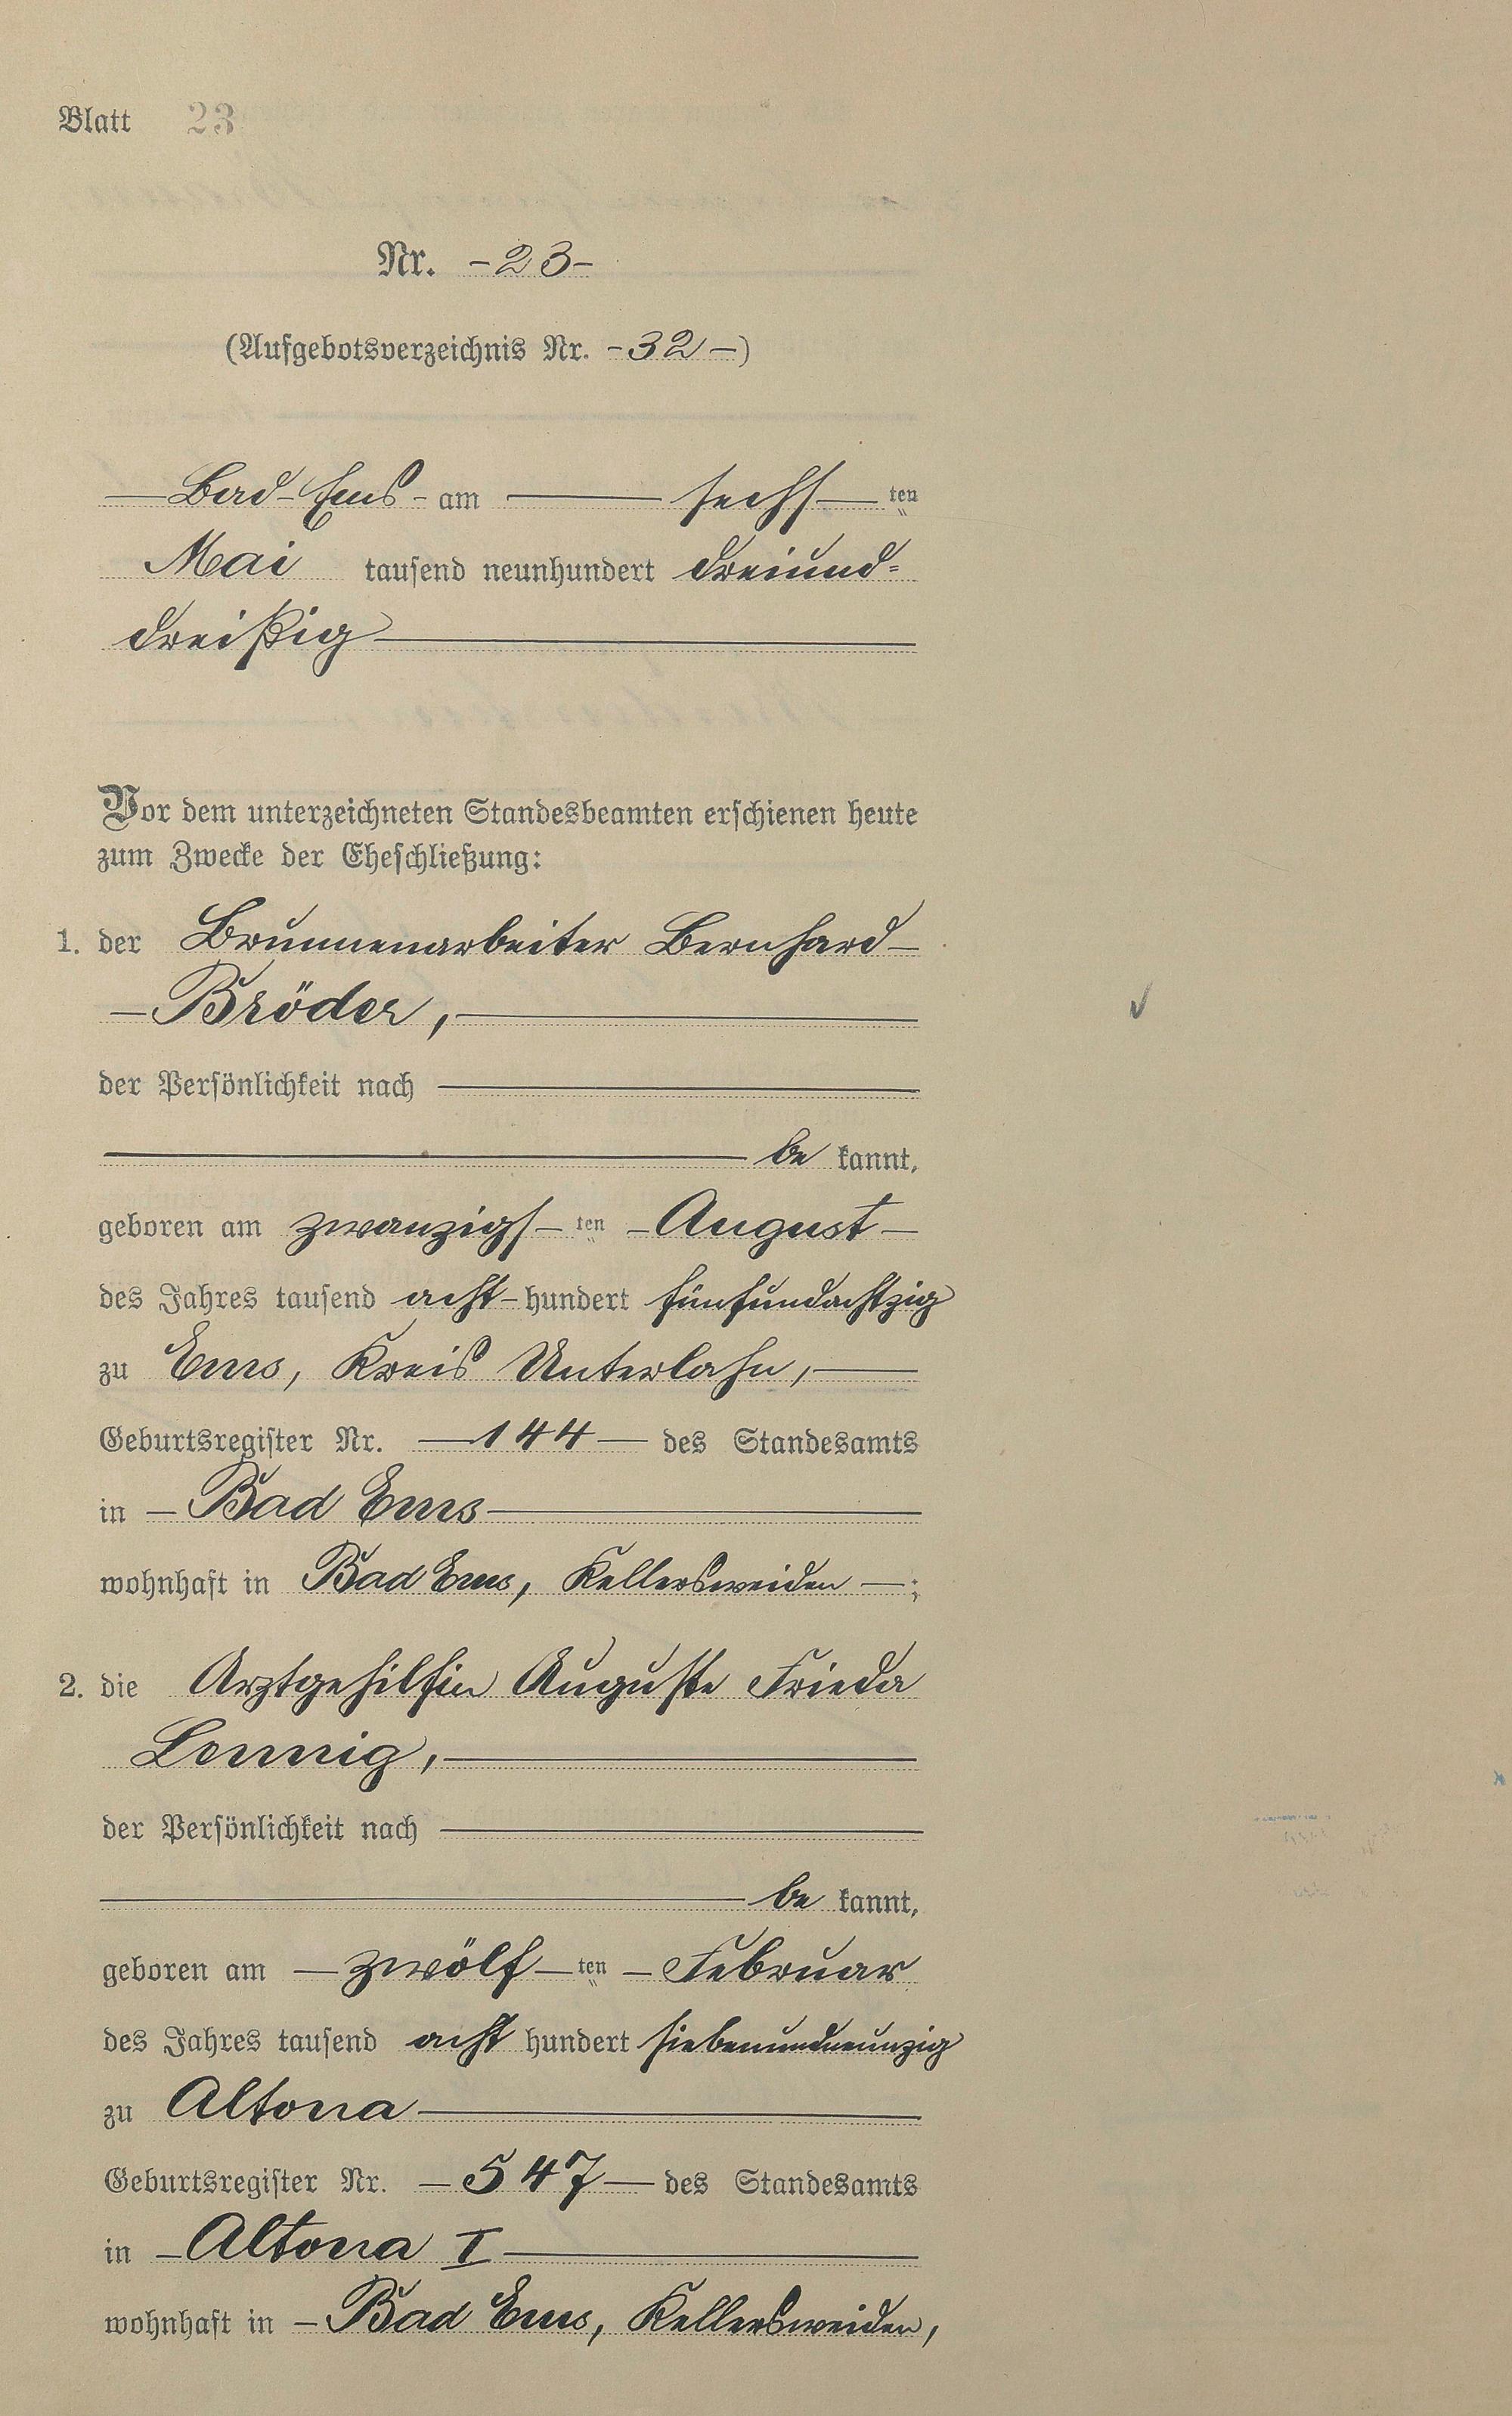 Blatt 23
Nr. -23-
(Aufgebotsverzeichnis Nr. -32-)
Bad-Ems- am sechs ten
Mai tausend neunhundert dreiund-
dreißig
Vor dem unterzeichneten Standesbeamten erschienen heute
zum Zwecke der Eheschließung:
1. der Brunnenarbeiter Bernhard
Bröder,
der Persönlichkeit nach
be kannt,
geboren am zwanzigs ten August
des Jahres tausend acht hundert fünfundachtzig
zu Ems, Kreis Unterlahn,
Geburtsregister Nr. 144 des Standesamts
in Bad Ems
wohnhaft in Bad Ems, Kellersweiden ;
2. die Arztgehilfin Auguste Frieda
Lennig,
der Persönlichkeit nach
be kannt,
geboren am zwölf ten Februar
des Jahres tausend acht hundert siebenundneunzig
zu Altona
Geburtsregister Nr. 547 des Standesamts
in Altona I
wohnhaft in Bad Ems, Kellersweiden,